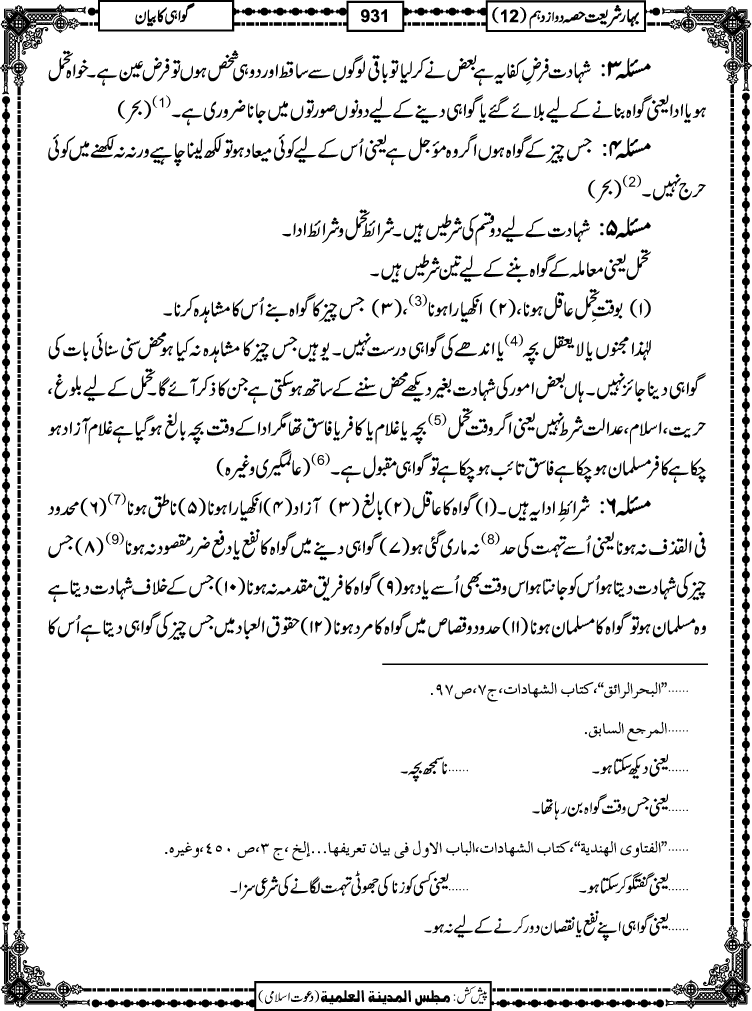 بہارِ شریعت حصہ دوازدہم (12)
931
گواہی کا بیان
مسئلہ ۳: شہادت فرضِ کفایہ ہے بعض نے کرلیا تو باقی لوگوں سے ساقط اور دو ہی شخص ہوں تو فرض عین ہے۔ خواہ تحمل
ہو یا ادا یعنی گواہ بنانے کے لیے بلائے گئے یا گواہی دینے کے لیے دونوں صورتوں میں جانا ضروری ہے۔(1) (بحر)
مسئلہ ۴: جس چیز کے گواہ ہوں اگر وہ مؤجل ہے یعنی اُس کے لیے کوئی میعاد ہو تو لکھ لینا چاہیے ورنہ نہ لکھنے میں کوئی
حرج نہیں۔(2) (بحر)
مسئلہ ۵: شہادت کے لیے دو قسم کی شرطیں ہیں۔ شرائط تحمل و شرائط ادا۔
تحمل یعنی معاملہ کے گواہ بننے کے لیے تین شرطیں ہیں۔
(۱) بوقتِ تحمل عاقل ہونا، (۲) انکھیارا ہونا(3)، (۳) جس چیز کا گواہ بنے اُس کا مشاہدہ کرنا۔
لہٰذا مجنوں یا لایعقل بچہ(4) یا اندھے کی گواہی درست نہیں۔ یوہیں جس چیز کا مشاہدہ نہ کیا ہو محض سنی سنائی بات کی
گواہی دینا جائز نہیں۔ ہاں بعض امور کی شہادت بغیر دیکھے محض سننے کے ساتھ ہوسکتی ہے جن کا ذکر آئے گا۔ تحمل کے لیے بلوغ،
حریت، اسلام، عدالت شرط نہیں یعنی اگر وقت تحمل(5) بچہ یا غلام یا کافر یا فاسق تھا مگر ادا کے وقت بچہ بالغ ہوگیا ہے غلام آزاد ہو
چکا ہے کافر مسلمان ہوچکا ہے فاسق تائب ہوچکا ہے تو گواہی مقبول ہے۔(6) (عالمگیری وغیرہ)
مسئلہ ۶: شرائطِ ادا یہ ہیں۔ (۱) گواہ کا عاقل (۲) بالغ (۳) آزاد (۴) انکھیارا ہونا (۵) ناطق ہونا(7) (۶) محدود
فی القذف نہ ہونا یعنی اُسے تہمت کی حد(8) نہ ماری گئی ہو (۷) گواہی دینے میں گواہ کا نفع یا دفع ضرر مقصود نہ ہونا(9) (۸) جس
چیز کی شہادت دیتا ہو اُس کو جانتا ہو اس وقت بھی اُسے یاد ہو (۹) گواہ کا فریق مقدمہ نہ ہونا (۱۰) جس کے خلاف شہادت دیتا ہے
وہ مسلمان ہو تو گواہ کا مسلمان ہونا (۱۱) حدود و قصاص میں گواہ کا مرد ہونا (۱۲) حقوق العباد میں جس چیز کی گواہی دیتا ہے اُس کا
......”البحرالرائق“، کتاب الشهادات، ج۷، ص۹۷.
......المرجع السابق.
......یعنی دیکھ سکتا ہو۔ ......ناسمجھ بچہ۔
......یعنی جس وقت گواہ بن رہا تھا۔
......”الفتاوی الهندية“، کتاب الشهادات، الباب الاول فی بیان تعریفها...إلخ، ج ۳، ص ٤٥٠، وغیرہ.
......یعنی گفتگو کرسکتا ہو۔ ......یعنی کسی کو زنا کی جھوٹی تہمت لگانے کی شرعی سزا۔
......یعنی گواہی اپنے نفع یا نقصان دور کرنے کے لیے نہ ہو۔
پیش کش: مجلس المدینۃ العلمیۃ (دعوت اسلامی)